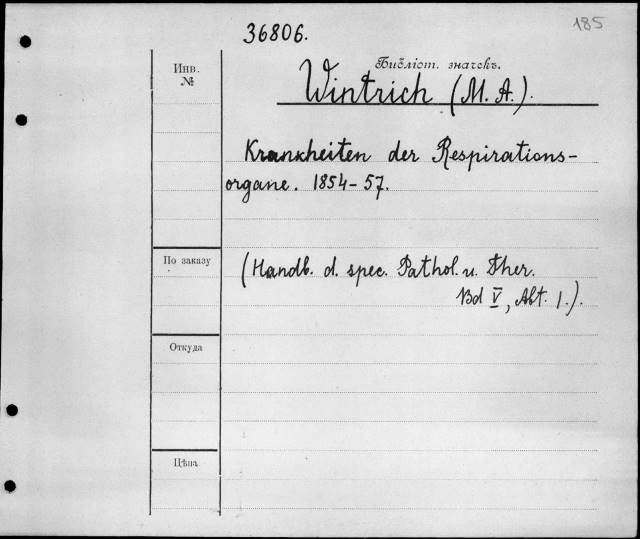 185
36806.
Инв.
№
Библіот. значекъ.
Wintrich (M. A.).
Krankheiten der Respirations-
organe. 1854-57.
По заказу
(Handb. d. spec. Pathol. u. Ther.
Bd V, Abt. 1.).
Откуда
Цѣна